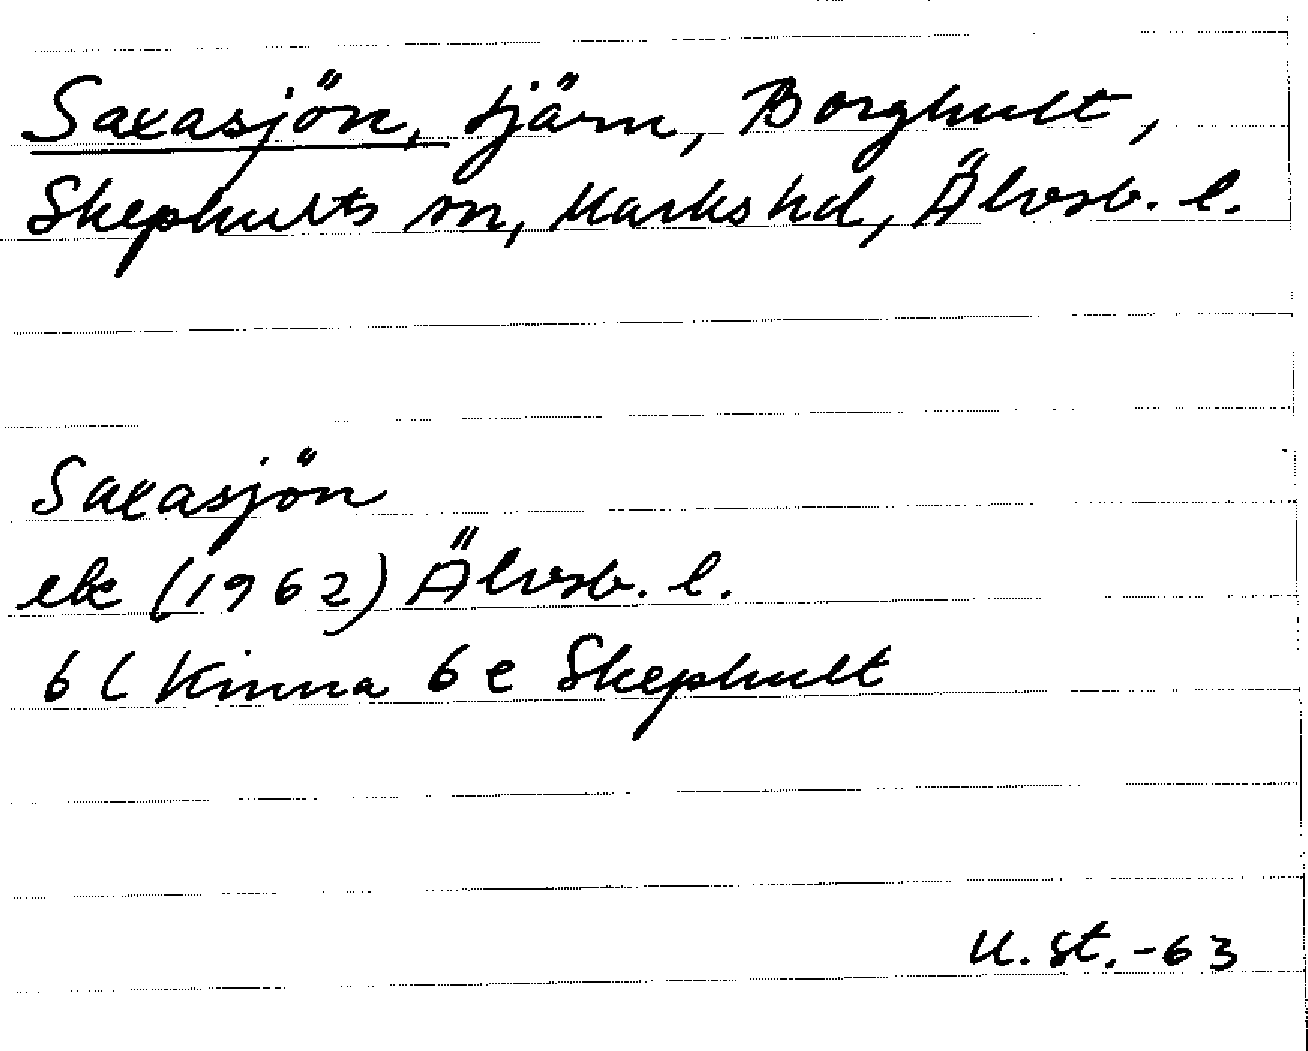 Saxasjön, tjärn, Borghult,
Skephults sn, Marks hd, Älvsb. l.
Saxasjön
ek (1962) Älvsb. l.
6 C Kinna 6 e Skephult
U. St. -63